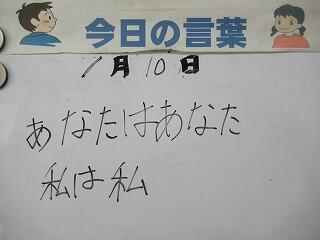 今日の言葉
1月10日
あなたはあなた
私は私